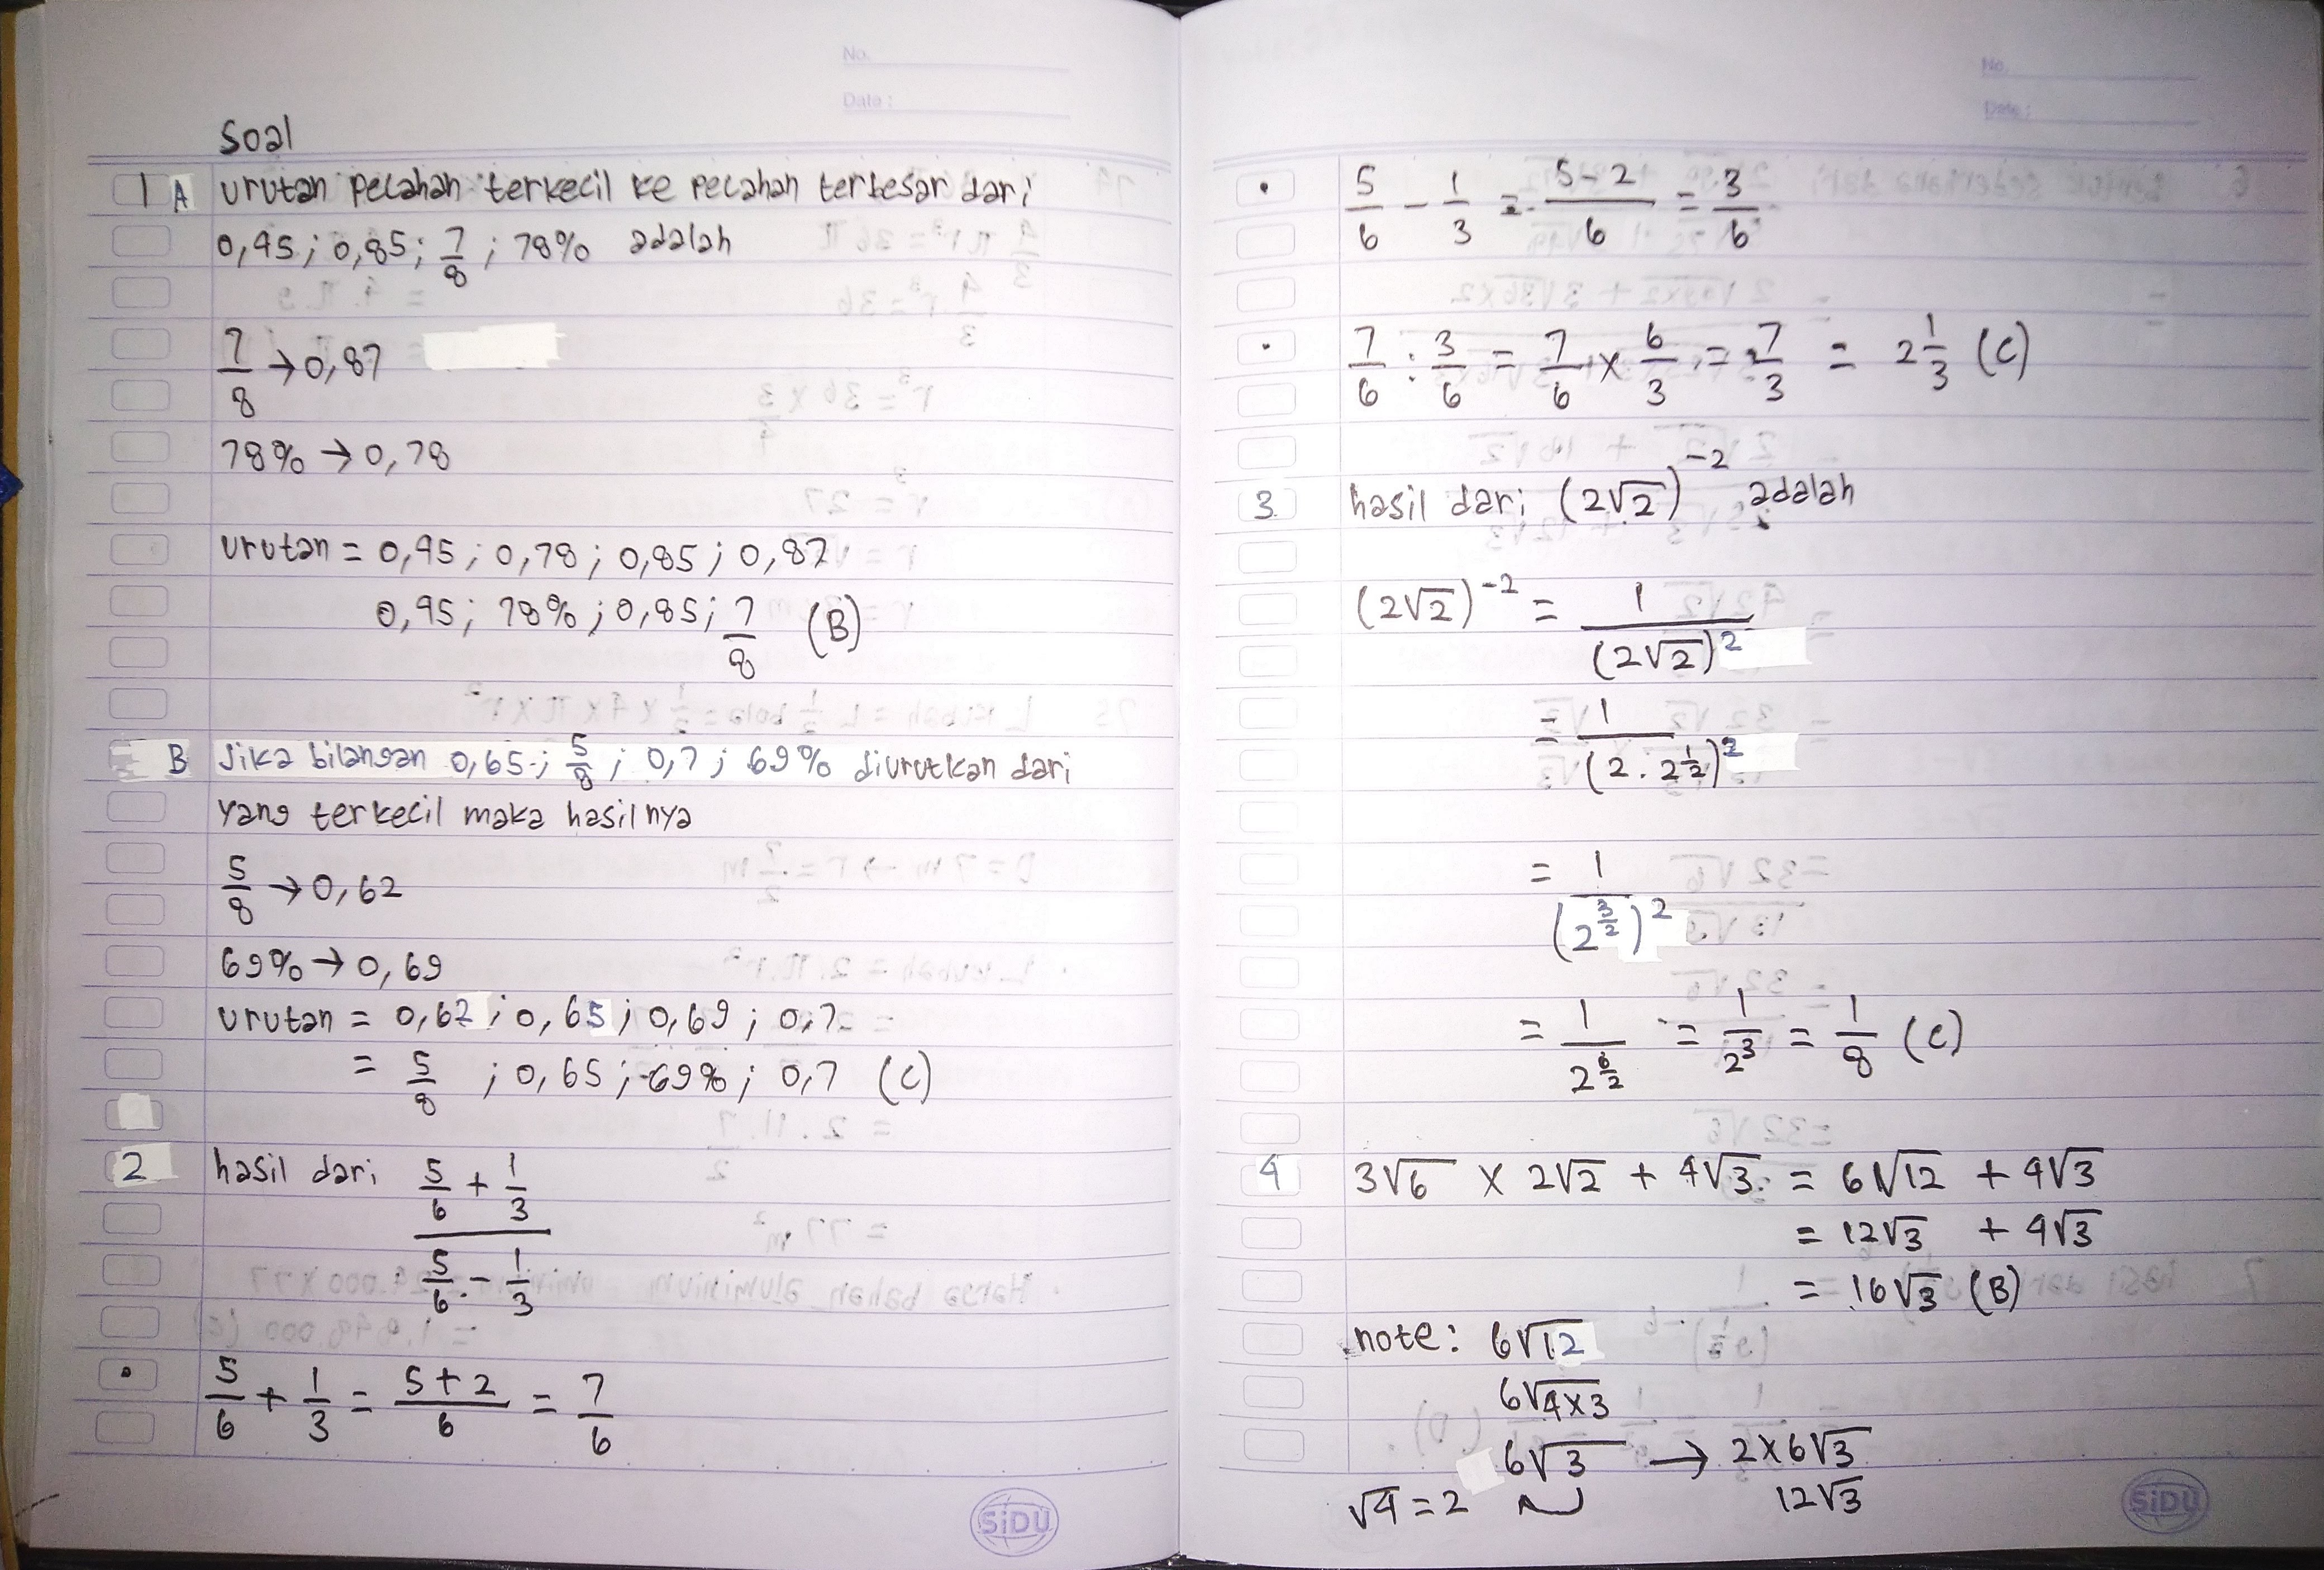 No.
Date :
Soal
1 A urutan pecahan terkecil ke pecahan terbesar dari
0,45 ; 0,85 ; 7/8 ; 78% adalah
7/8 → 0,87
78% → 0,78
urutan = 0,45 ; 0,78 ; 0,85 ; 0,87
0,45 ; 78% ; 0,85 ; 7/8 (B)
B Jika bilangan 0,65 ; 5/8 ; 0,7 ; 69% diurutkan dari
yang terkecil maka hasilnya
5/8 → 0,62
69% → 0,69
urutan = 0,62 ; 0,65 ; 0,69 ; 0,7
= 5/8 ; 0,65 ; 69% ; 0,7 (C)
2 hasil dari (5/6 + 1/3)/(5/6 - 1/3)
• 5/6 + 1/3 = (5+2)/6 = 7/6
SiDU
No.
Date :
• 5/6 - 1/3 = (5-2)/6 = 3/6
• 7/6 : 3/6 = 7/6 × 6/3 = 7/3 = 2 1/3 (C)
3 hasil dari (2√2)^-2 adalah
(2√2)^-2 = 1/(2√2)^2
= 1/(2 . 2^1/2)^2
= 1/(2^3/2)^2
= 1/2^6/2 = 1/2^3 = 1/8 (C)
4 3√6 × 2√2 + 4√3 = 6√12 + 4√3
= 12√3 + 4√3
= 16√3 (B)
note: 6√12
6√4×3
6√3 → 2×6√3
√4 = 2 12√3
SiDU